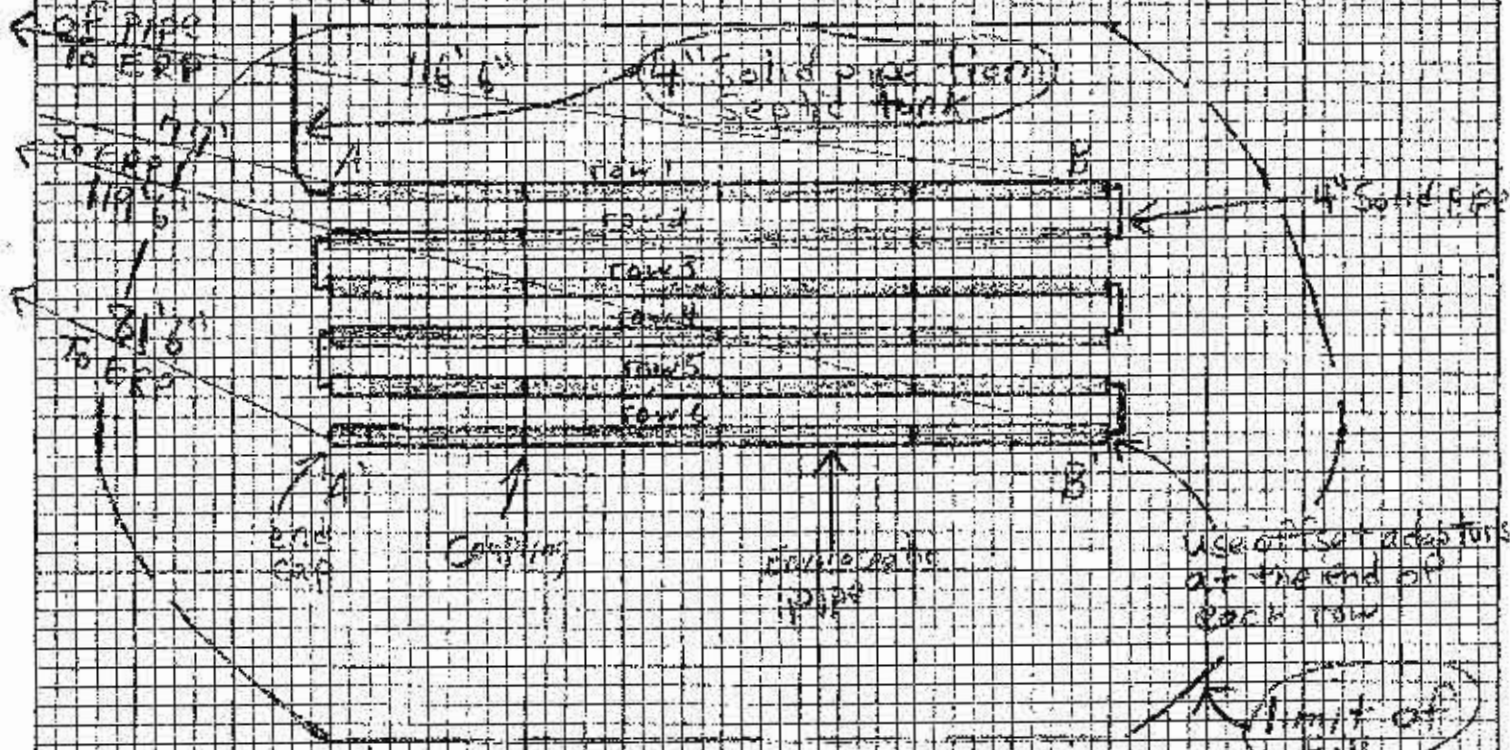 of pipe
To ERP
116' 6"
4" Solid pipe from
Septic tank
77'
To ERP
119' 6"
A
row 1
B
4" Solid pipe
row 2
row 3
row 4
81' 6"
To ERP
row 5
row 6
A'
B'
end
cap
Coupling
Enviroseptic
pipe
use offset adaptors
at the end of
each row
limit of